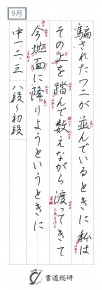 9月
騙されたワニが並んでいるときに私は
その上を踏んで数えながら渡ってきて
今地面に降りようというときに
中一・二・三 八段〜初段
書道総研